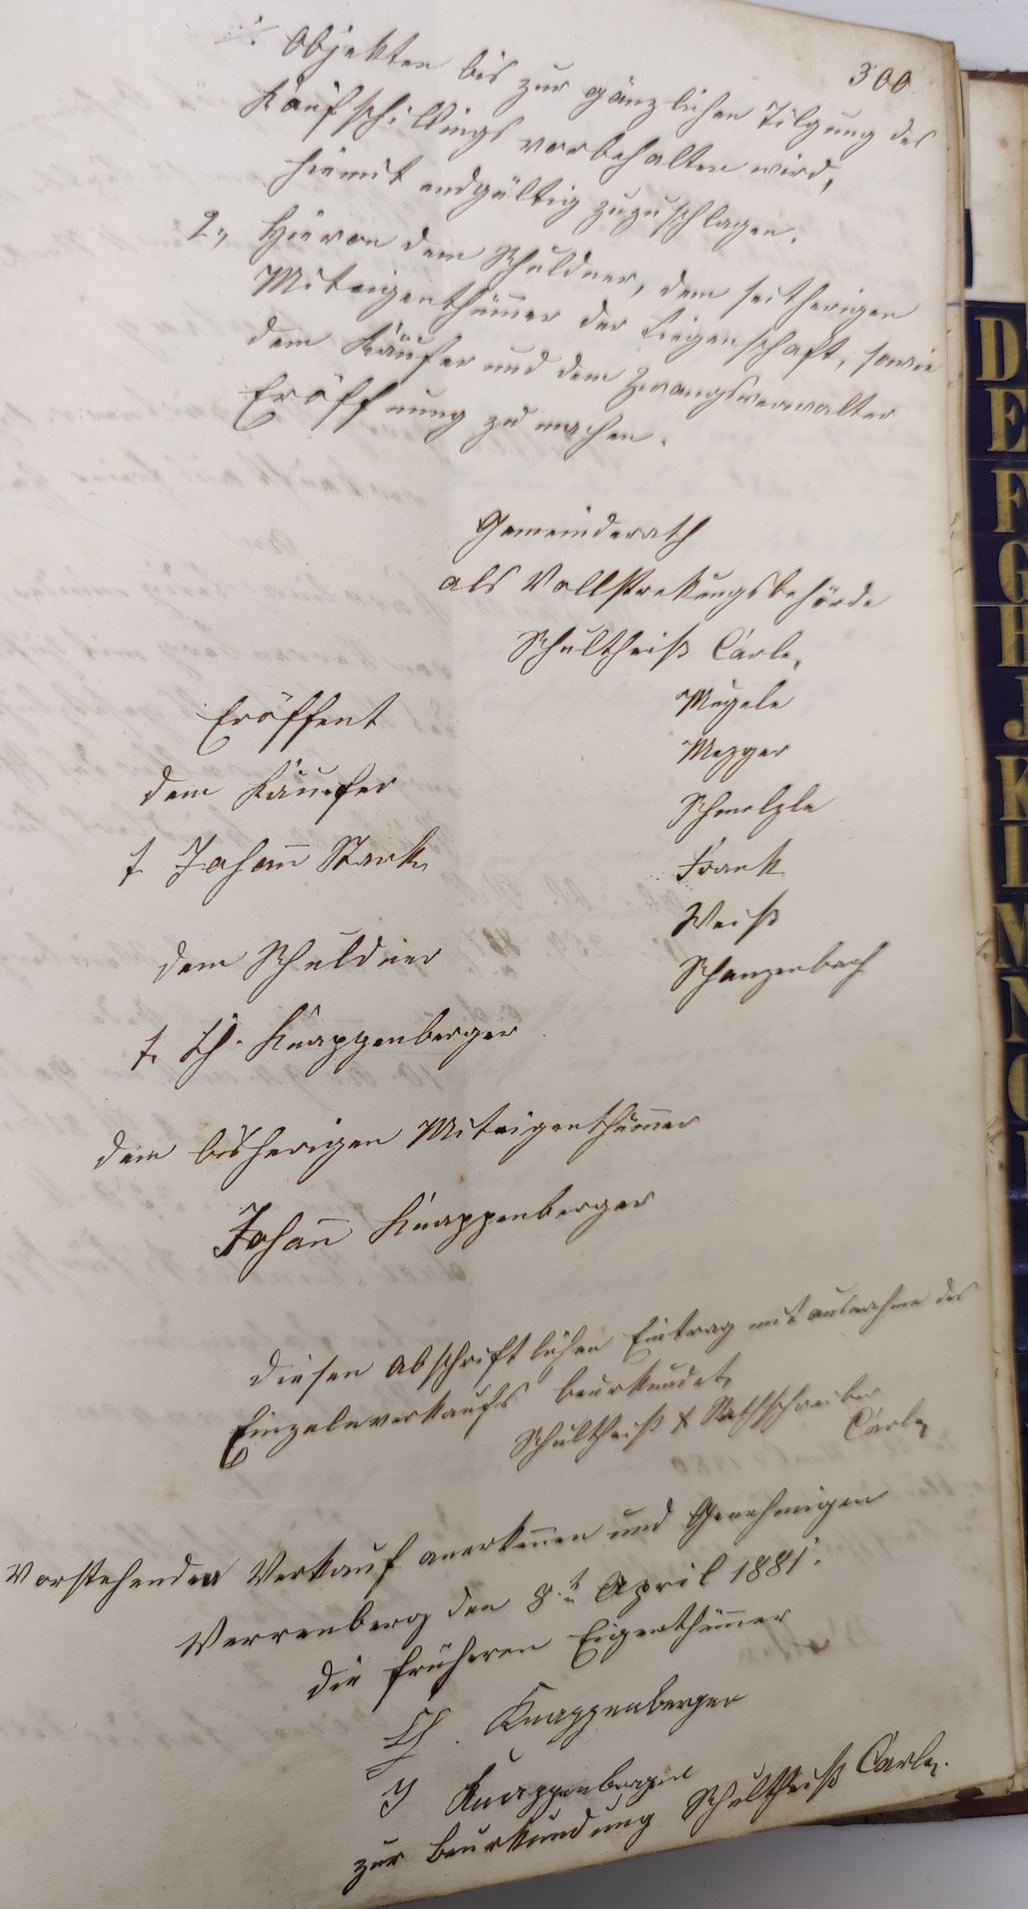 300
./. Objekten bis zur gänzlichen Tilgung des
Kaufschillings vorbehalten wird,
hiemit endgültig zuzuschlagen.
2., Hievon dem Schuldner, dem seitherigen
Miteigenthümer der Liegenschaft, sowie
dem Käufer und dem Zwangsverwalter
Eröffnung zu machen.
Gemeinderath
als Vollstrekungsbehörde
Schultheiß Carle,
Mugele
Mezger
Schmelzle
Frank
Weiß
Schanzenbach
Eröffent
dem Käufer
t. Johann Stark
dem Schuldner
t. Ch. Knappenberger
dem bisherigen Miteigenthümer
Johann Knappenberger
Diesen abschriftlichen Eintrag mit ausnahme des
Einzelnverkaufs beurkundet
Schultheiß & Rathschreiber
Carle
Vorstehenden Verkauf anerkennen und Genehmigen
Verrenberg den 8.t April 1881.
die früheren Eigenthümer
Ch. Knappenberger
J Knappenberger
zur Beurkundung Schultheiß Carle.
D
E
F
G
H
J
K
L
M
N
O